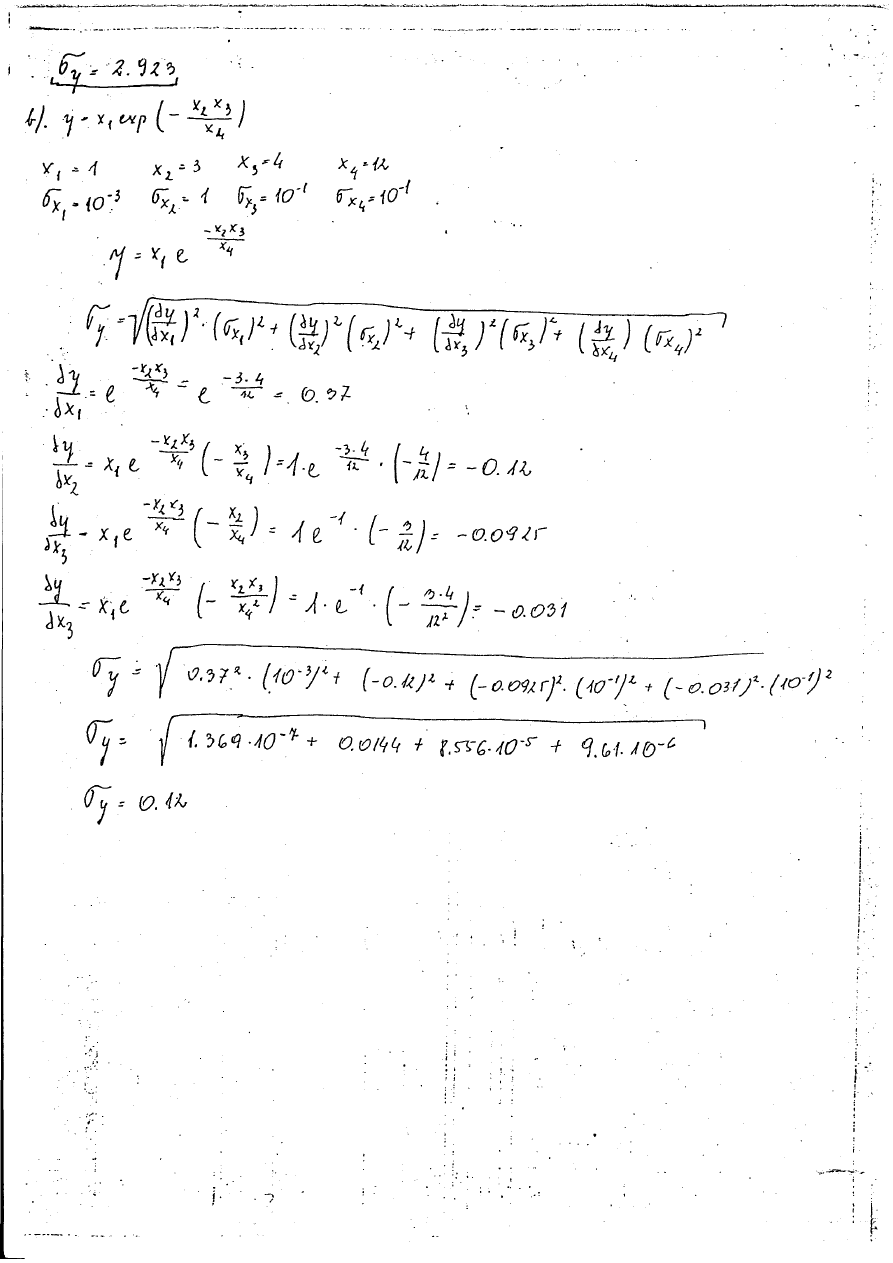 σy = 2.923
b). y = x₁ exp (− x₂ x₃ / x₄)
x₁ = 1 x₂ = 3 x₃ = 4 x₄ = 12
σx₁ = 10⁻³ σx₂ = 1 σx₃ = 10⁻¹ σx₄ = 10⁻¹
y = x₁ e^(−x₂x₃/x₄)
σy = √((δy/δx₁)² · (σx₁)² + (δy/δx₂)² (σx₂)² + (δy/δx₃)² (σx₃)² + (δy/δx₄) (σx₄)²)
δy/δx₁ = e^(−x₂x₃/x₄) = e^(−3·4/12) = 0.37
δy/δx₂ = x₁ e^(−x₂x₃/x₄) (− x₃/x₄) = 1·e^(−3·4/12) · (− 4/12) = −0.12
δy/δx₃ = x₁ e^(−x₂x₃/x₄) (− x₂/x₄) = 1 e⁻¹ · (− 3/12) = −0.0925
δy/δx₃ = x₁ e^(−x₂x₃/x₄) (− x₂x₃/x₄²) = 1·e⁻¹ · (− 3·4/12²) = −0.031
σy = √(0.37² · (10⁻³)² + (−0.12)² + (−0.0925)² · (10⁻¹)² + (−0.031)² · (10⁻¹)²
σy = √(1.369·10⁻⁷ + 0.0144 + 8.556·10⁻⁵ + 9.61·10⁻⁶)
σy = 0.12